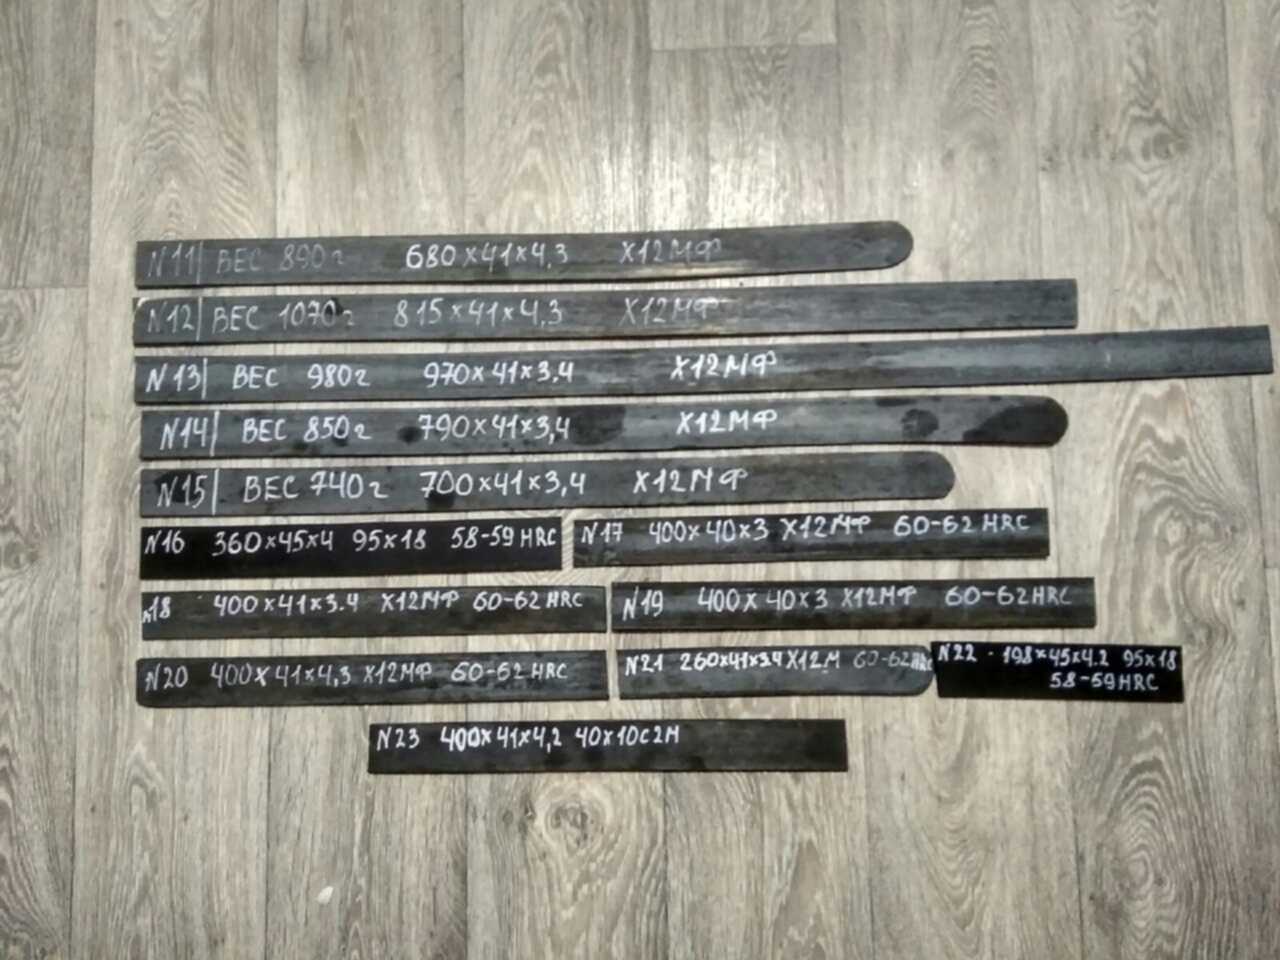 N11 ВЕС 890г 680х41х4,3 Х12МФ
N12 ВЕС 1070г 815х41х4,3 Х12МФ
N13 ВЕС 980г 970х41х3.4 Х12МФ
N14 ВЕС 850г 790х41х3,4 Х12МФ
N15 ВЕС 740г 700х41х3,4 Х12МФ
N16 360х45х4 95х18 58-59HRC
N17 400х40х3 Х12МФ 60-62HRC
N18 400х41х3.4 Х12МФ 60-62HRC
N19 400х40х3 Х12МФ 60-62HRC
N20 400х41х4,3 Х12МФ 60-62HRC
N21 260х41х3.4 Х12М 60-62HRC
N22 198х45х4.2 95х18
58-59HRC
N23 400х41х4,2 40х10с2м